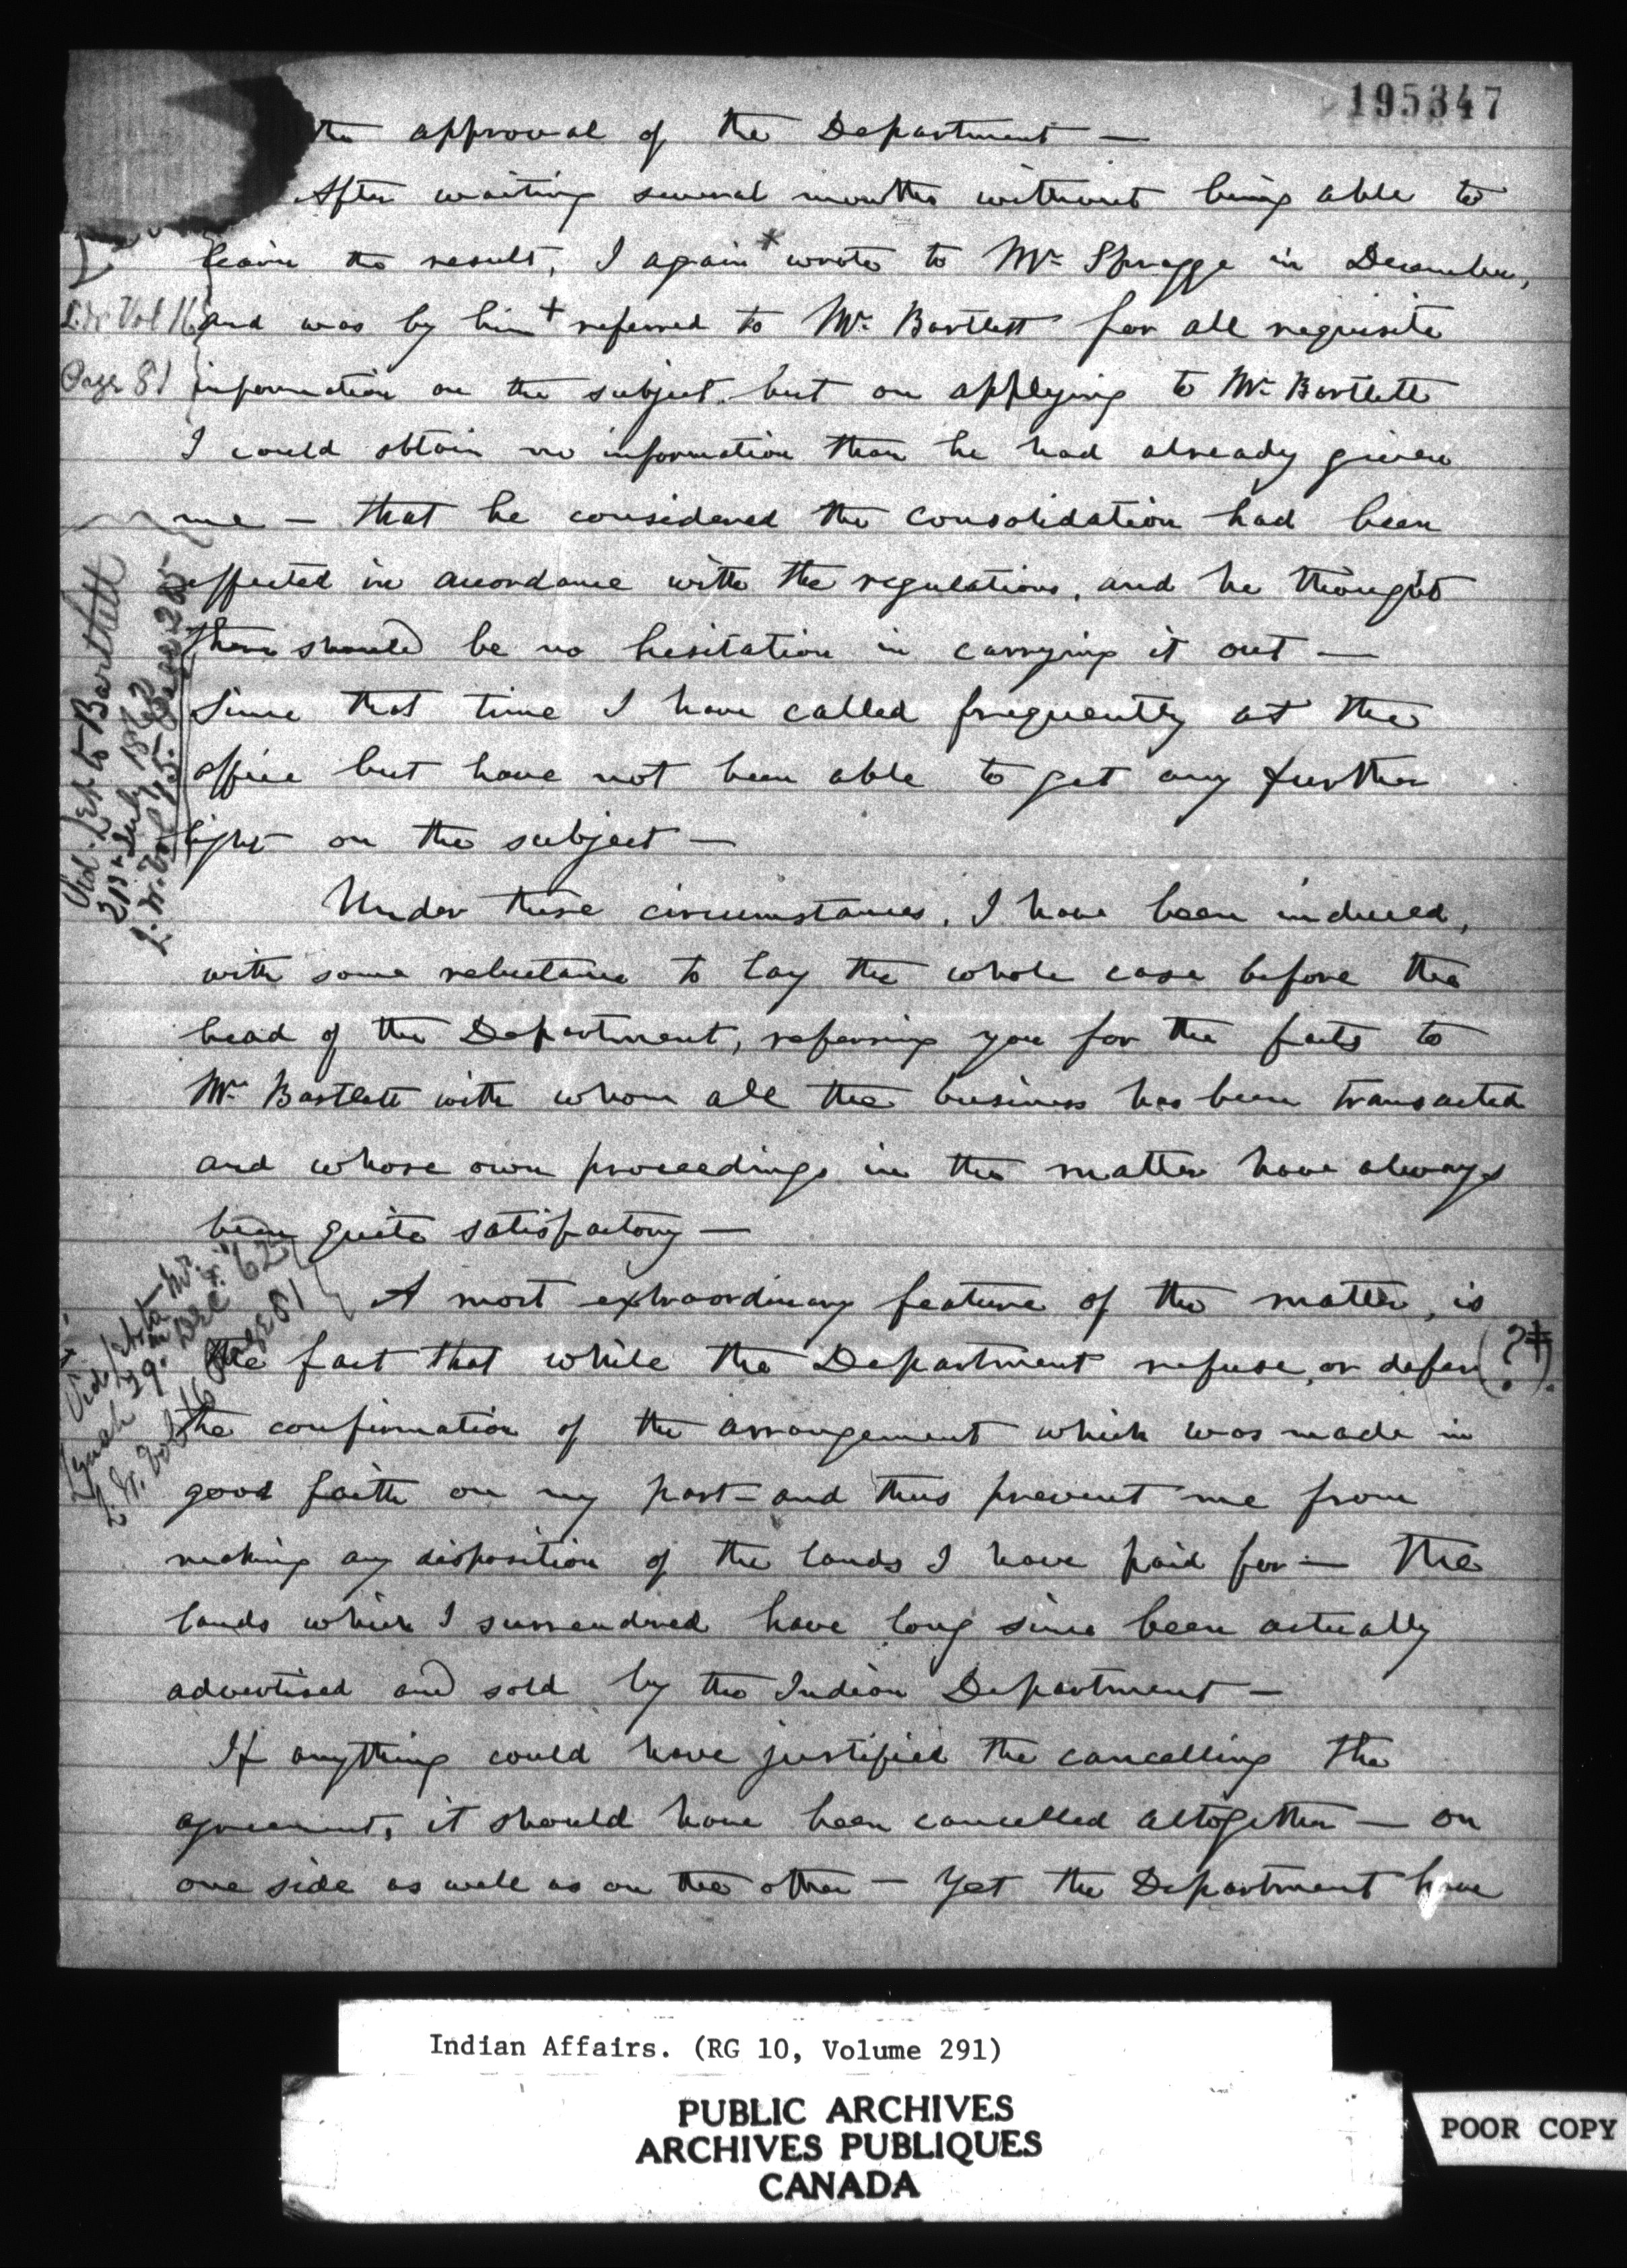 195347
the approval of the Department —
After waiting several months without being able to
learn the result, I again * wrote to Mr Spragge in December,
and was by him + referred to Mr Bartlett for all requisite
information on the subject. but on applying to Mr Bartlett
I could obtain no information than he had already given
me — that he considered the consolidation had been
effected in accordance with the regulations, and he thought
there should be no hesitation in carrying it out —
Since that time I have called frequently at the
office but have not been able to get any further
light on the subject —
Under these circumstances, I have been induced,
with some reluctance to lay the whole case before the
head of the Department, referring you for the facts to
Mr Bartlett with whom all the business has been transacted
and whose own proceedings in the matter have always
been quite satisfactory —
A most extraordinary feature of the matter, is
the fact that while the Department refuse, or defer (?‡).
the confirmation of the arrangement which was made in
good faith on my part — and thus prevent me from
making any disposition of the lands I have paid for — the
lands which I surrendered have long since been actually
advertised and sold by the Indian Department —
If anything could have justified the cancelling the
agreement, it should have been cancelled altogether — on
one side as well as on the other — Yet the Department have
L.W. Vol 16
Page 81
Vid. Let to Bartlett
21st July 1862
L.W. Vol 15. Page 285
Vide let to Mr.
Lynah 29. Dec. '62
L.W. Vol 16 Page 81
Indian Affairs. (RG 10, Volume 291)
PUBLIC ARCHIVES
ARCHIVES PUBLIQUES
CANADA
POOR COPY